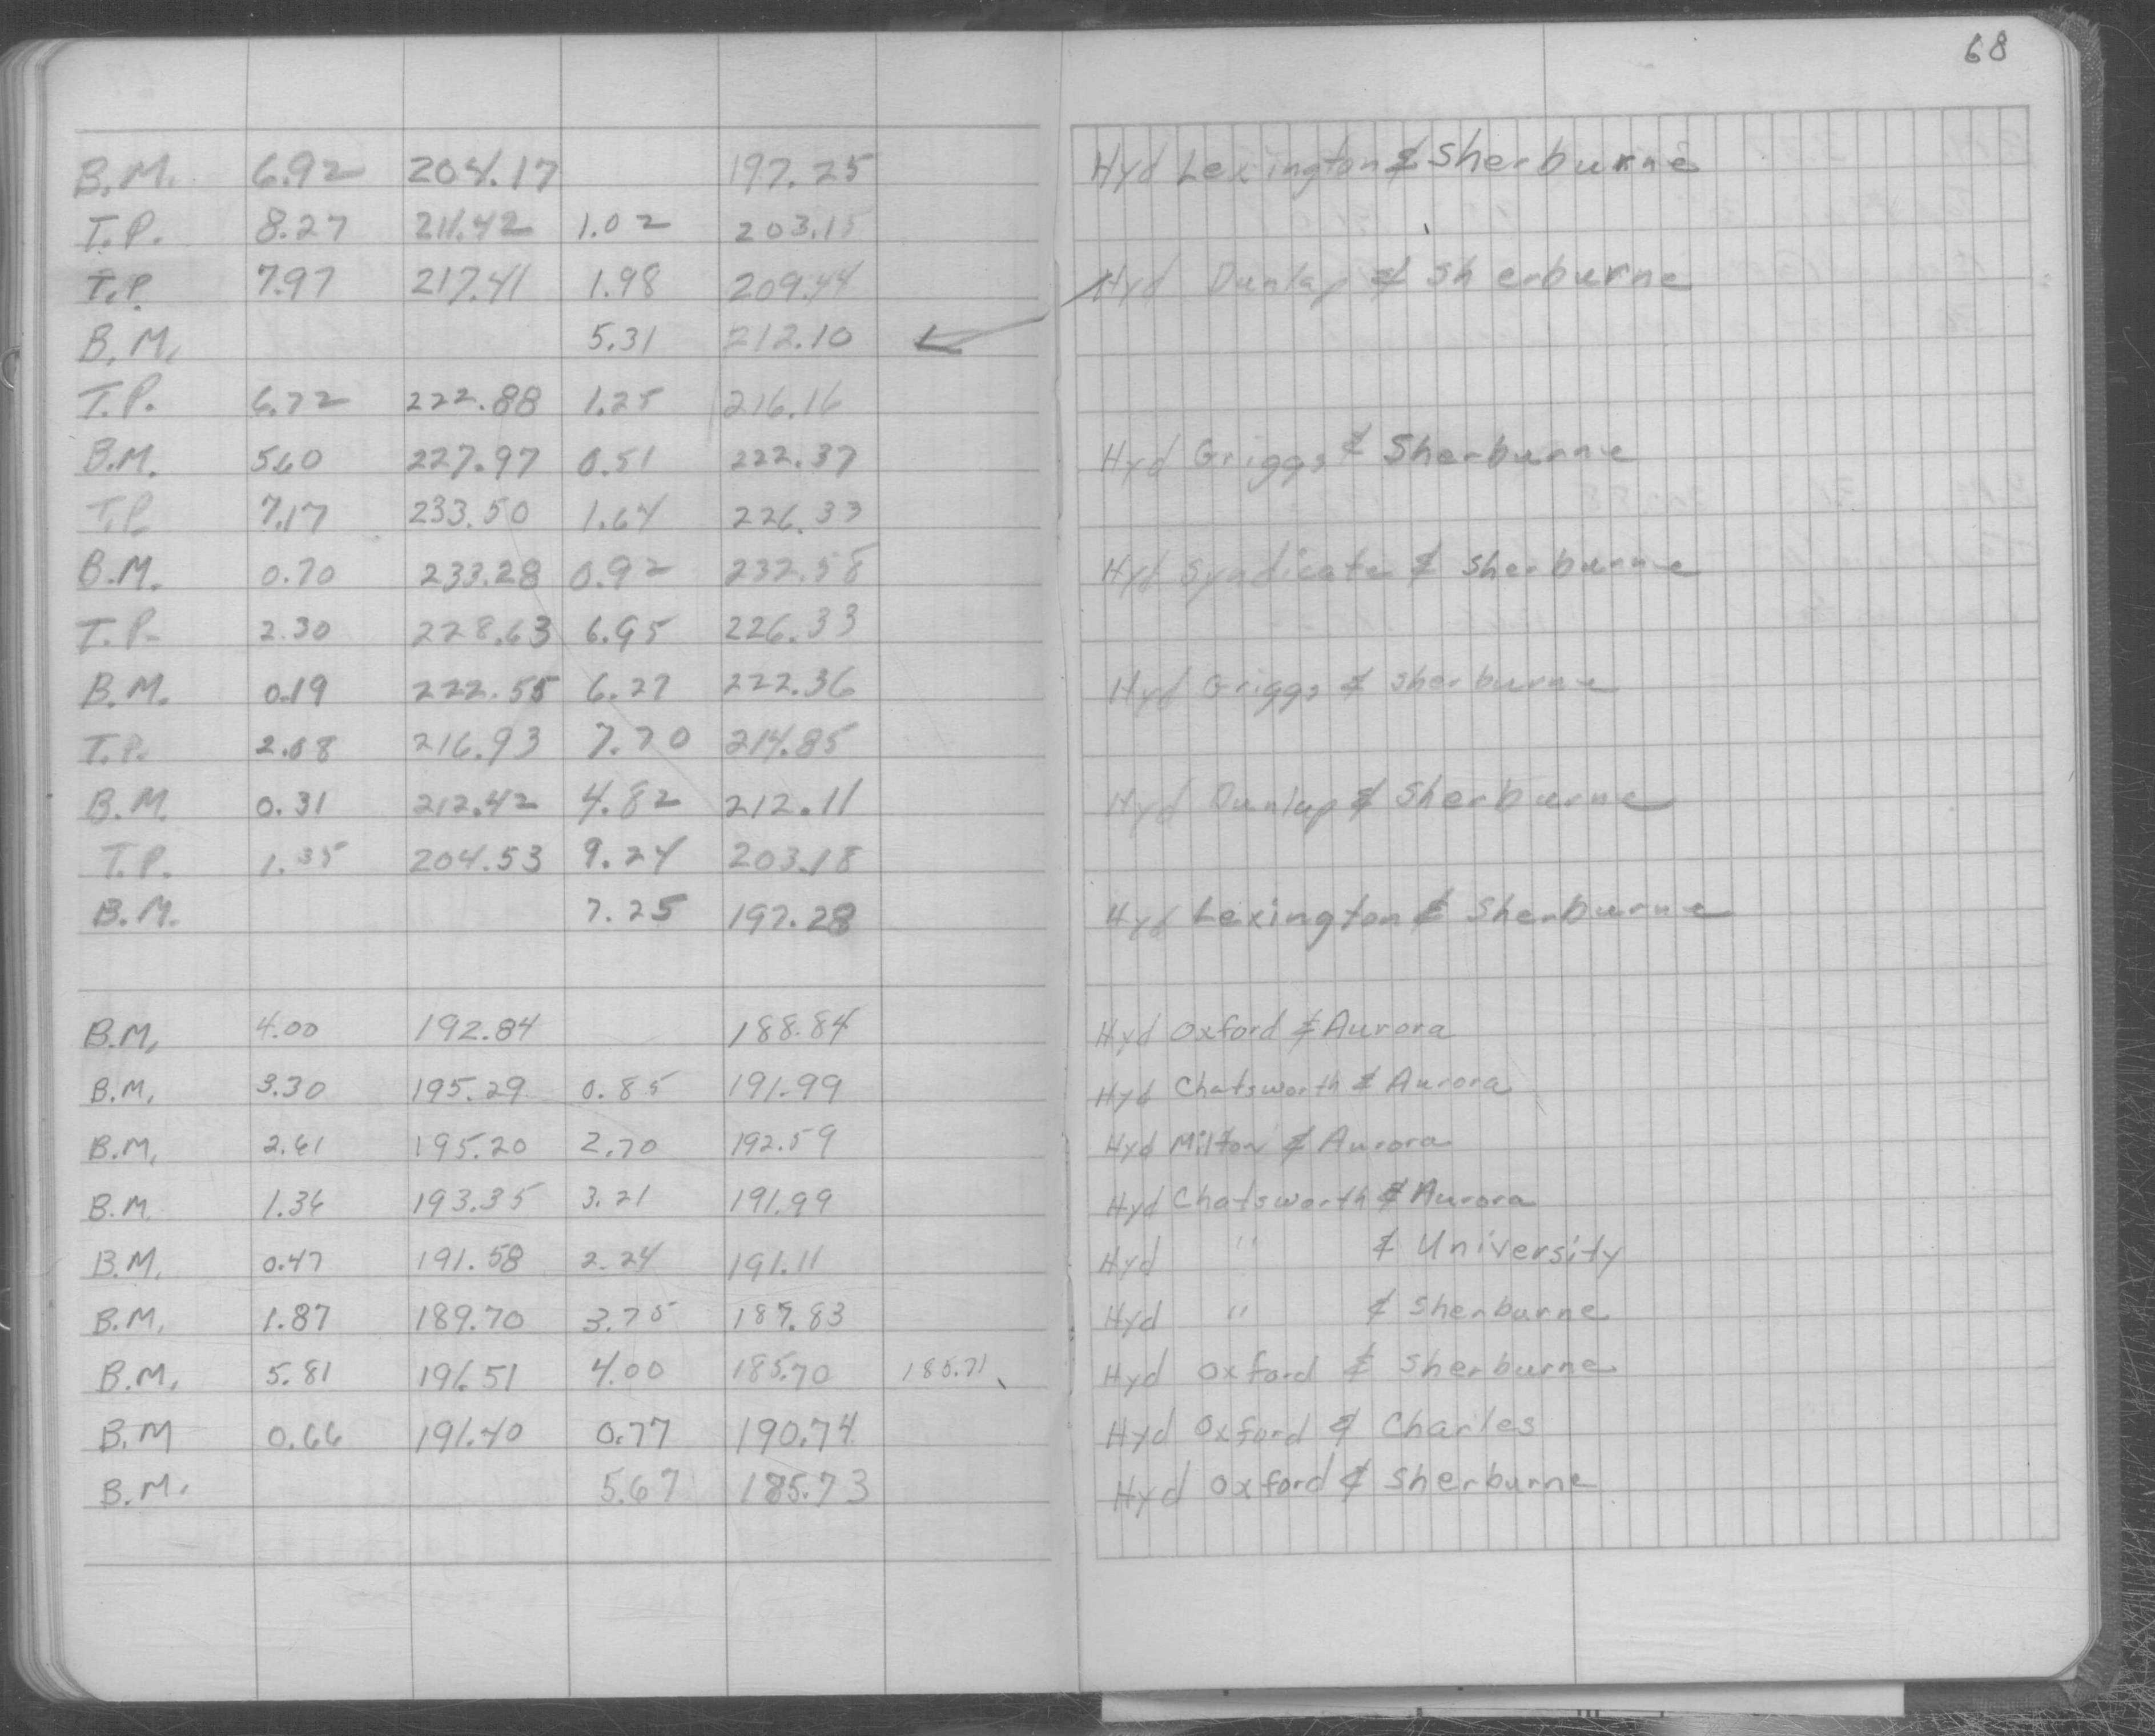 68
B.M. 6.92 204.17 197.25 Hyd Lexington & Sherburne
T.P. 8.27 211.42 1.02 203.15
T.P. 7.97 217.41 1.98 209.44 Hyd Dunlap & Sherburne
B.M. 5.31 212.10
T.P. 6.72 222.88 1.25 216.16
B.M. 5.60 227.97 0.51 222.37 Hyd Griggs & Sherburne
T.P. 7.17 233.50 1.64 226.33
B.M. 0.70 233.28 0.92 232.58 Hyd Syndicate & Sherburne
T.P. 2.30 228.63 6.95 226.33
B.M. 0.19 222.55 6.27 222.36 Hyd Griggs & Sherburne
T.P. 2.08 216.93 7.70 214.85
B.M. 0.31 212.42 4.82 212.11 Hyd Dunlap & Sherburne
T.P. 1.35 204.53 9.24 203.18
B.M. 7.25 197.28 Hyd Lexington & Sherburne
B.M. 4.00 192.84 188.84 Hyd Oxford & Aurora
B.M. 3.30 195.29 0.85 191.99 Hyd Chatsworth & Aurora
B.M. 2.61 195.20 2.70 192.59 Hyd Milton & Aurora
B.M. 1.36 193.35 3.21 191.99 Hyd Chatsworth & Aurora
B.M. 0.47 191.58 2.24 191.11 Hyd " & University
B.M. 1.87 189.70 3.75 187.83 Hyd " & Sherburne
B.M. 5.81 191.51 4.00 185.70 185.71 Hyd Oxford & Sherburne
B.M 0.66 191.40 0.77 190.74 Hyd Oxford & Charles
B.M. 5.67 185.73 Hyd Oxford & Sherburne